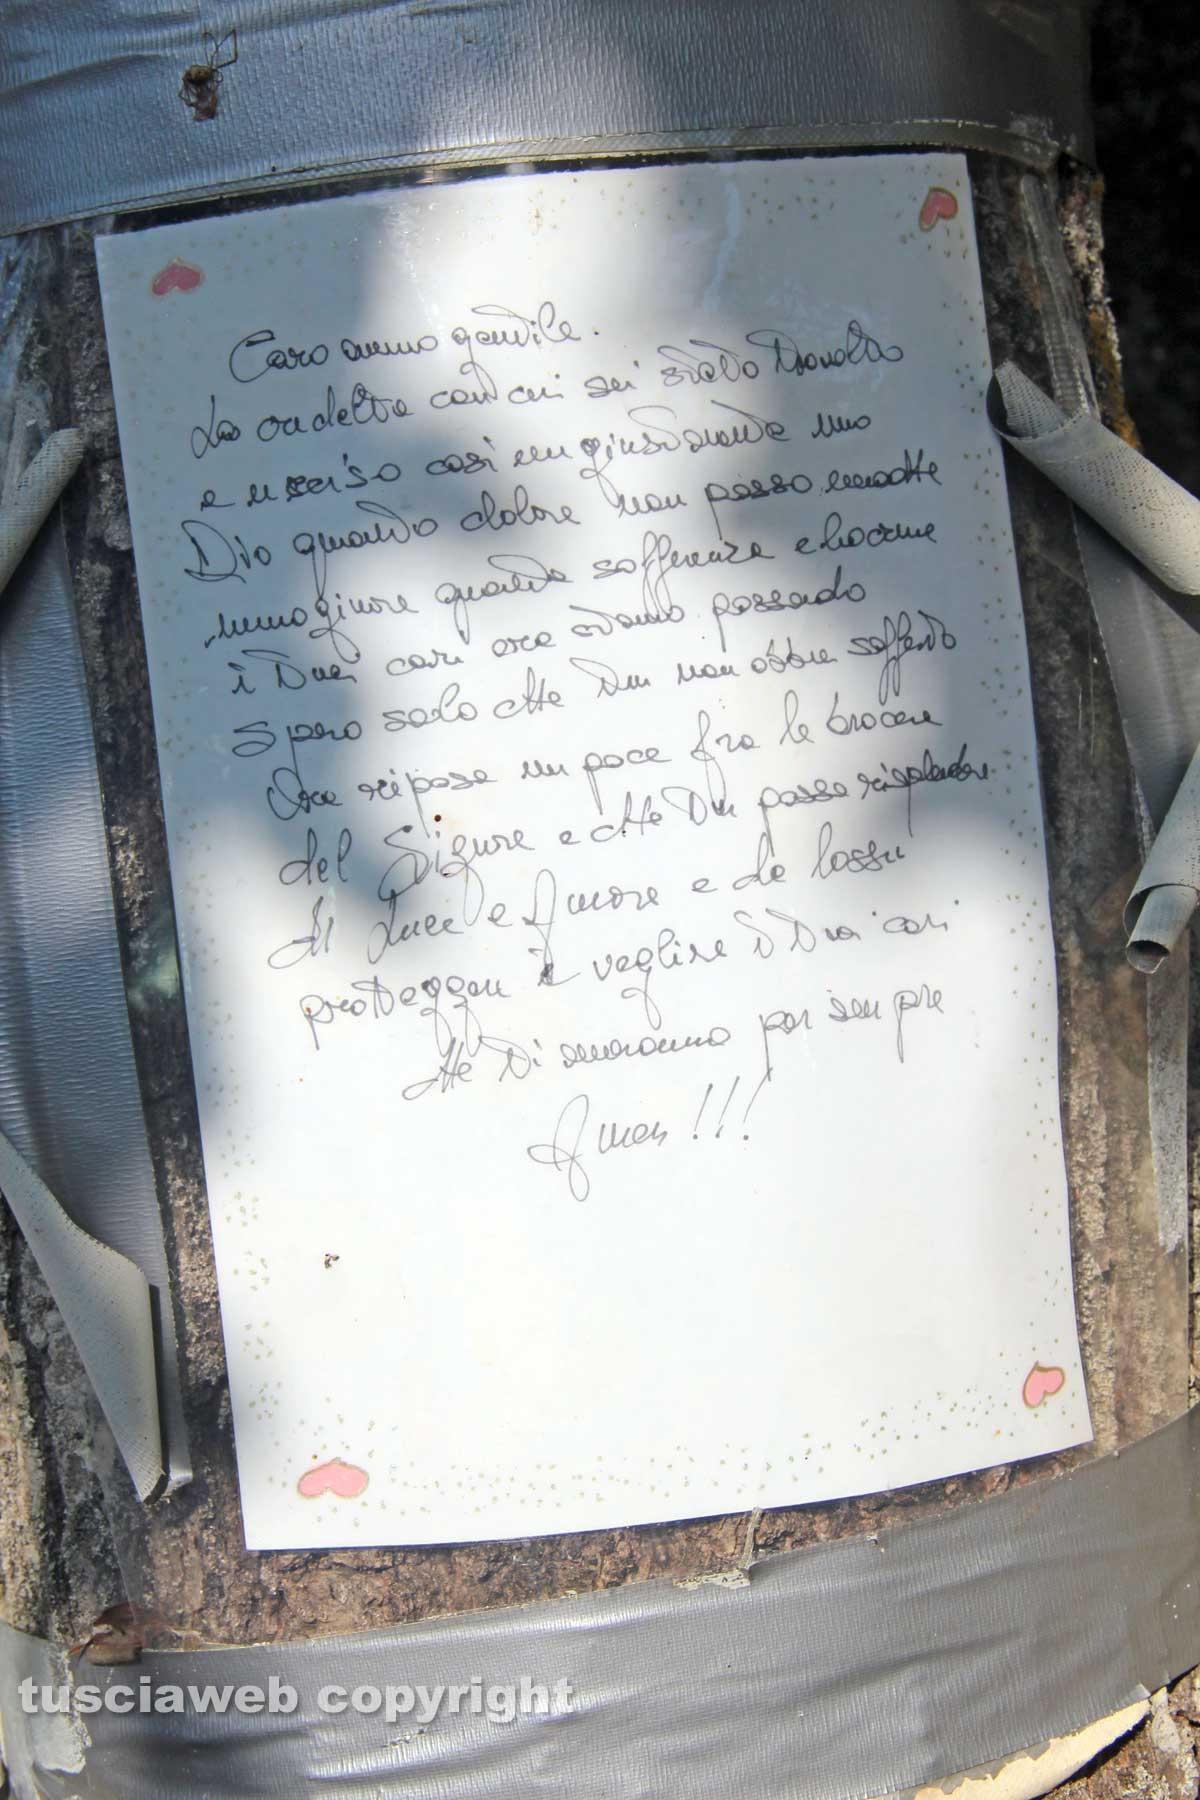 Caro animo gentile.
La crudelta con cui sei stato travolto
e ucciso così ingiustamente mio
Dio quanto dolore non posso
immaginare quanta sofferenza e lacrime
i tuoi cari ora stanno passando
Spero solo che tu non abbia sofferto
Ora riposa in pace fra le braccia
del Signore e che tu possa risplendere
di Luce e Amore e da lassu
proteggere e vegliare i tuoi cari
che ti ameranno per sempre
Amen!!!
tusciaweb copyright